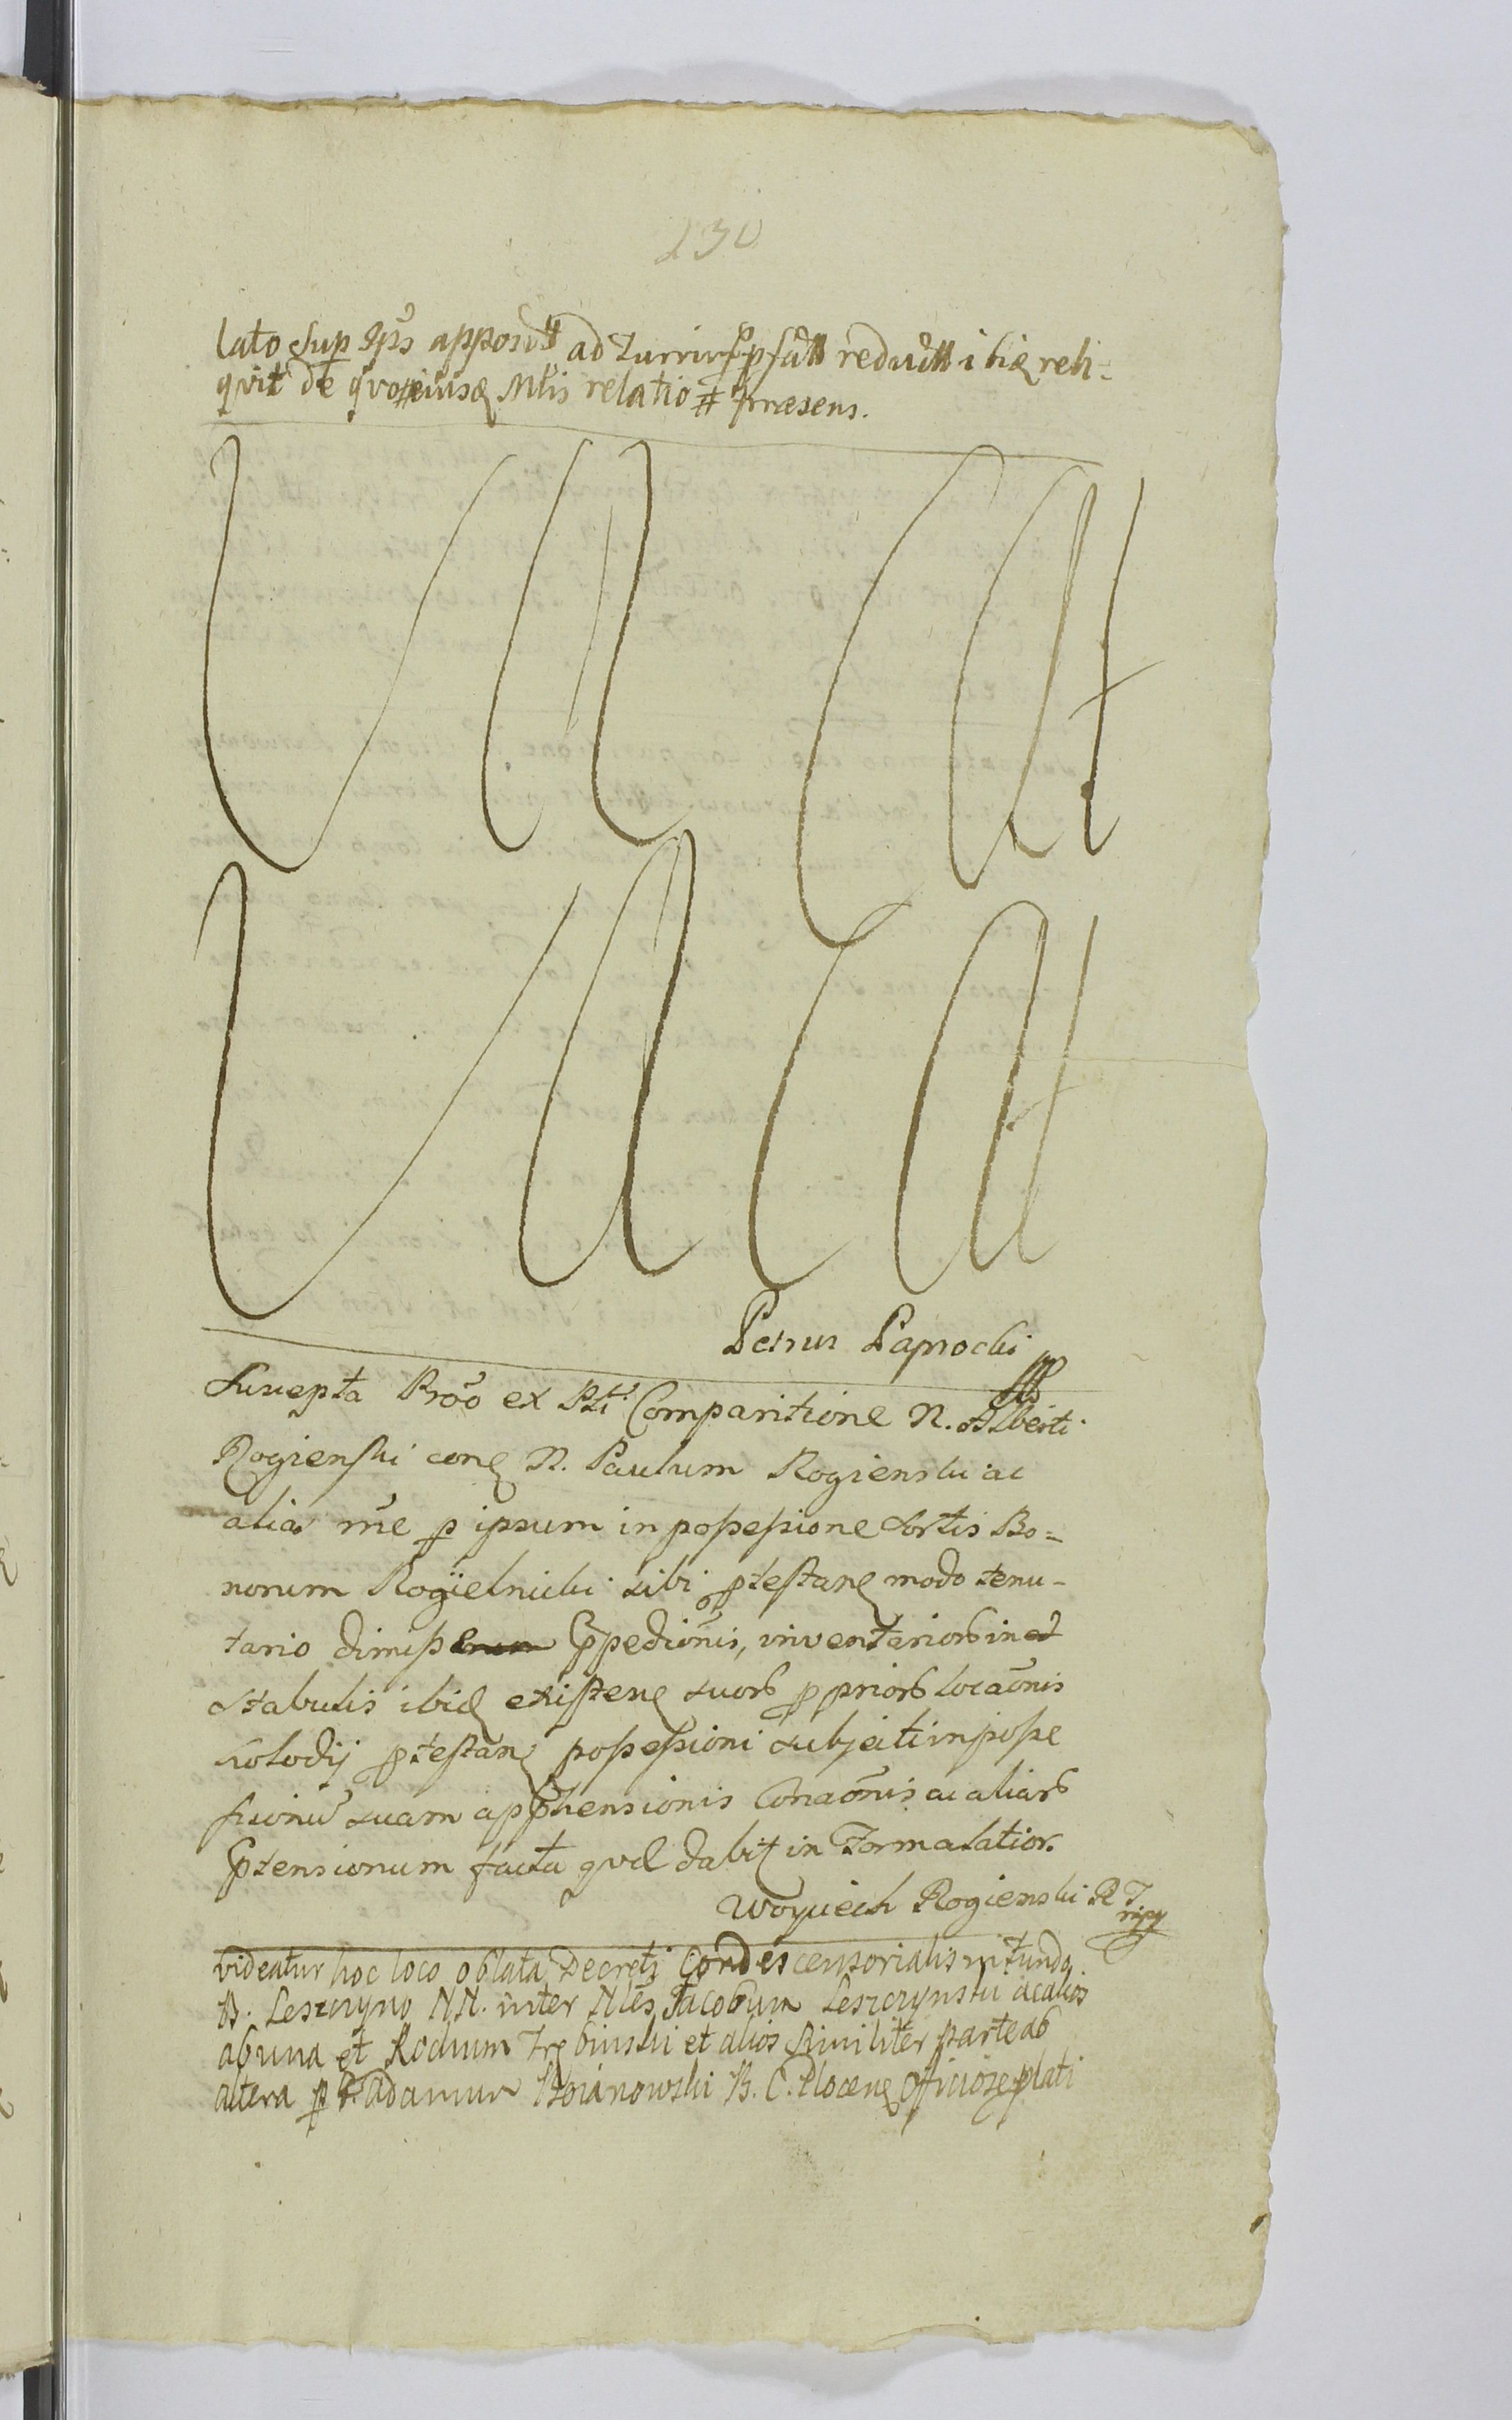 230
lato sup Ipŝ apposit ad turrim ppsat reduxit ibiq reli-
qvit de qvo eiusq Mtis relatio praesens.
Vacat
Vacat
Petrus Paprocki
Suscepta Proõ ex Pti Comparitione N. Alberti
Rogienski cone N. Paulum Rogienski ac
alias rñe p ipsum in possessione sortis Bo=
norum Rogielnicki sibi ptestane modo tenu-
tario dimiss Ppedionis, inventariorb in et
stabulis ibid existene suorb ppriorb locaõnis
Kolodij ptestane possessioni subjecti in posse
ssionẽ suam apphensionis Conaõnis ac aliarb
Ptensionum facta qvae dabit in Forma latior.
Woyciech Rogienski R T
mpp
videatur hoc loco oblata Decreti Condescensorialis in fundo
B. Leszczyno NN. inter Nles Jacobum Leszczynski ac alios
ab una et Rochum Trębinski et alios similiter parte ab
altera p G. Adamum Boianowski B. C. Plocene Officiose plati